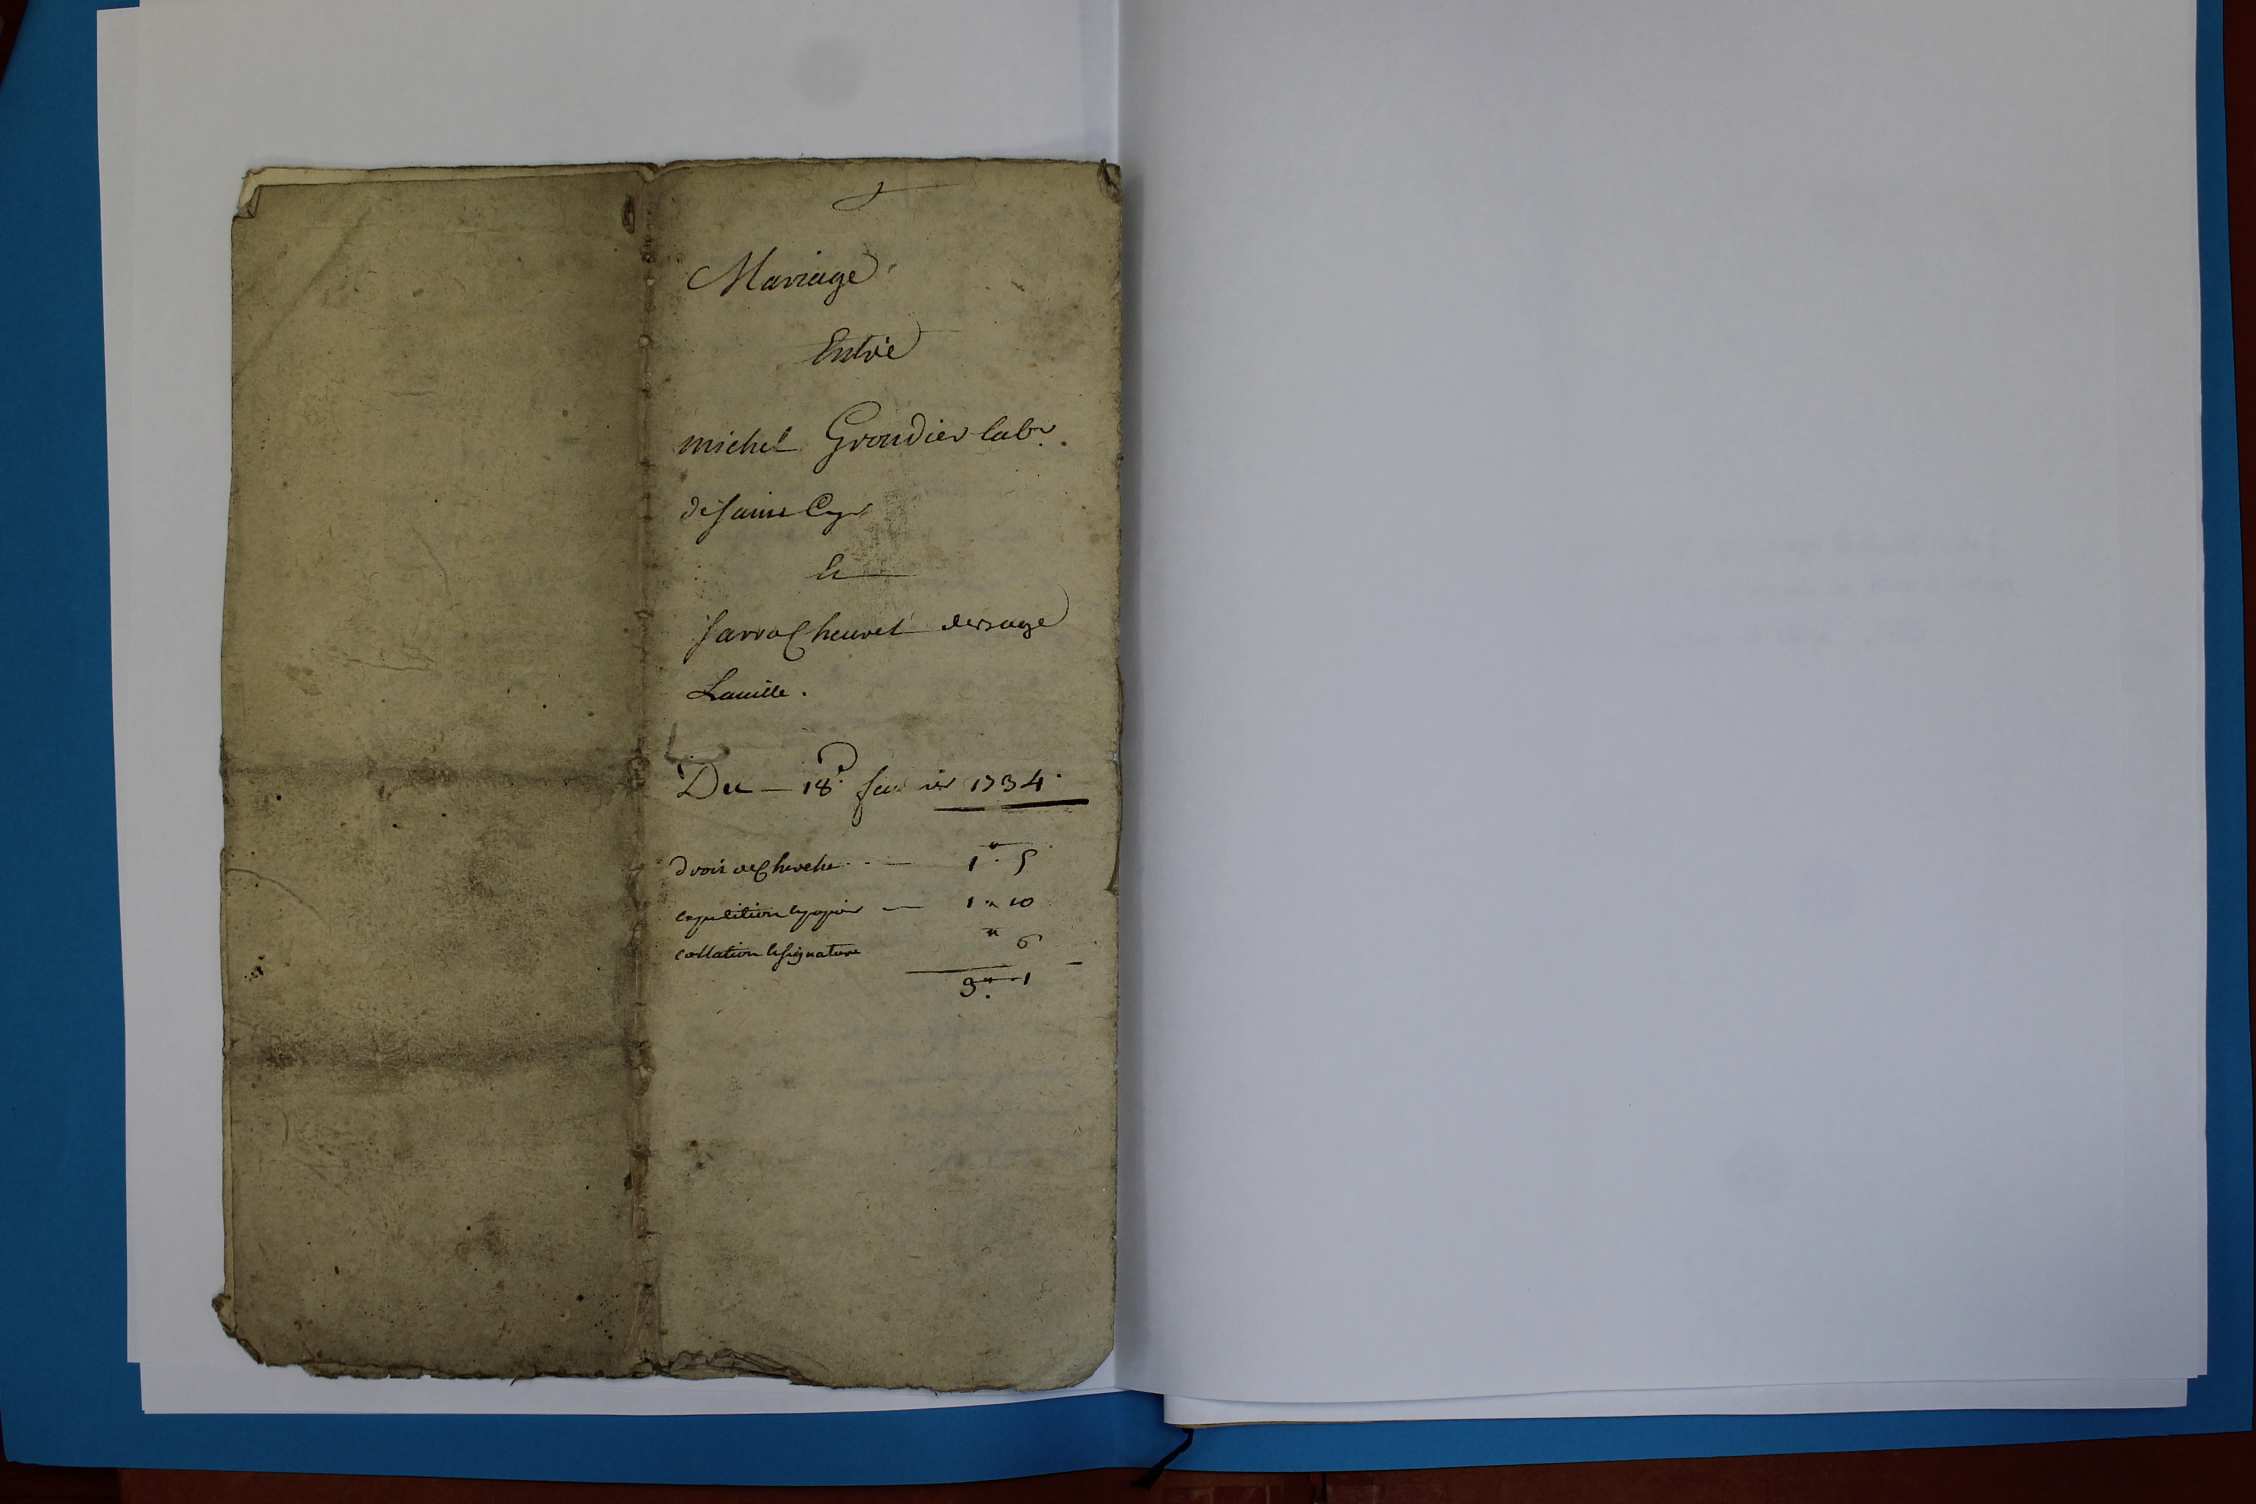 Mariage
Entre
michel Grondier labr.
de saint Cyr
et
sarra Cheuret de sage
Lauille.
Du 18e. feurier 1734.
droit de Cherche 1# 5
expedition papier 1 " 10
collation et signature " 6
3# 1